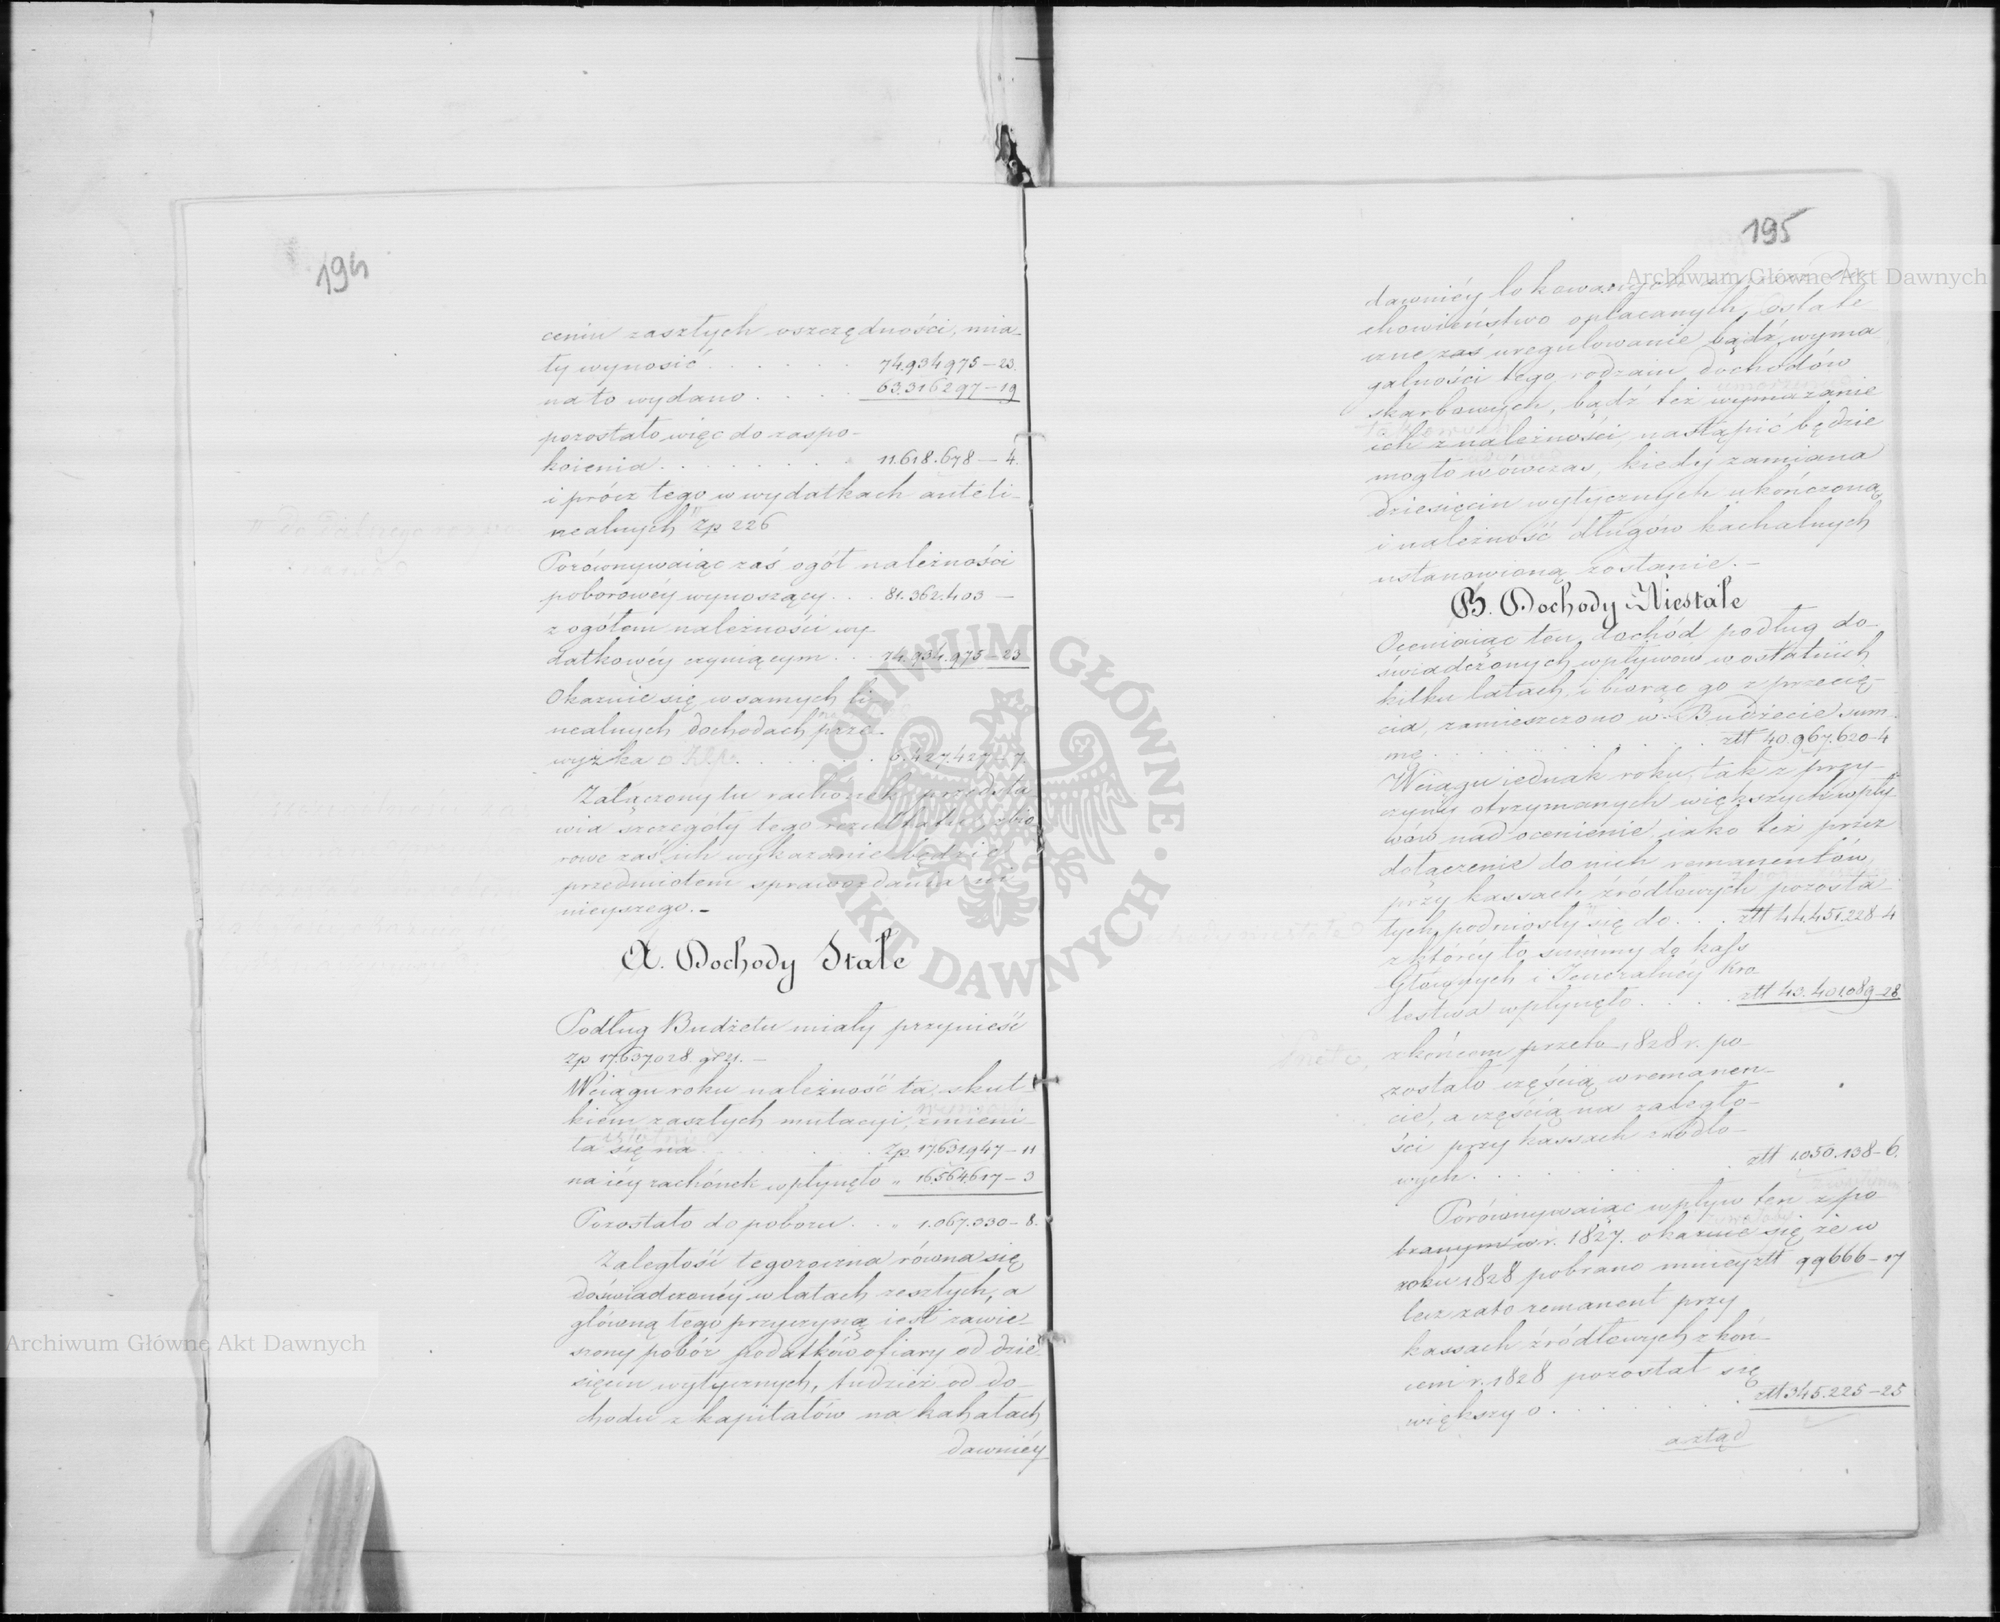 194
ceniu zaszłych oszczędności, mia-
ły wynosić . . . . . . 74.934975–23.
na to wydano . . . . 63.316297–19
pozostało więc do zaspo-
koienia . . . . . . . 11.618.678–4.
i prócz tego w wydatkach anteli-
nealnych zp 226
Porównywaiąc zaś ogół należności
poborowéy wynoszący . . . 81.362.403 —
z ogółem należności wy-
datkowéy czyniącym . . 74.934.975–23
Okazuie się w samych li-
nealnych dochodach prze-
wyżka o Złp. . . . . . . 6.427.427–7.
Załączony tu rachónek przedsta-
wia szczegóły tego rezultatu, zbio-
rowe zaś ich wykazanie będzie
przedmiotem sprawozdania ni-
nieyszego.–
A. Dochody Stałe
Podług Budżetu miały przynieść
zp 17.637.028 gr 21. —
W ciągu roku należność ta, skut-
kiem zaszłych mutacyi, zmieni-
ła się na . . . . . . zp 17.631.947–11
na iéy rachónek wpłynęło „ 16.564.617–3
Pozostało do poboru . . „ 1.067.330–8.
Zaległość tegoroczna równa się
doświadczonéy w latach zeszłych, a
główną tego przyczyną iest zawie-
szony pobór podatków ofiary od dzie-
sięcin wytycznych, tudzież od do-
chodu z kapitałów na kahałach
dawniéy
195
dawniéy lokowanych
chowieństwo opłacanych, ostate
czne zaś uregulowanie bądź wyma-
galności tego rodzaiu dochodów
skarbowych, bądź też wymazanie
ich z należności, nastąpić będzie
mogło wówczas, kiedy zamiana
dziesięcin wytycznych ukończoną,
i należność długów kachalnych
ustanowioną zostanie. –
B. Dochody Niestałe
Oceniaiąc ten dochód podług do-
świadczonych wpływów w ostatnich
kilku latach, i biorąc go z przecię-
cia, zamieszczono w Budżecie sum-
mę . . . . . . . . złt 40.967.620–4
W ciągu iednak roku, tak z przy-
czyny otrzymanych większych wpły-
wów nad ocenienie, iako też przez
dołączenie do nich remanentów,
przy kassach źródłowych pozosta-
łych, podniosły się do . . . złt 44.451.228–4
z któréy to summy do kass
Głównych i Jeneralnéy Kró-
lestwa wpłynęło . . . . złt 43.401.089–28
z końcem przeto 1828 r. po
zostało częścią w remanen-
cie, a częścią na zaległo-
ści przy kassach źródło-
wych . . . . . . . . złt 1.050.138–6.
Porównywaiąc wpływ ten z po
branym w r. 1827. okazuie się, że w
roku 1828 pobrano mniéy złt 99666–17
lecz zato remanent przy
kassach źródłowych z koń-
cem r. 1828 pozostał się
większy o . . . . . . . złt 345.225–25
a ztąd
Archiwum Główne Akt Dawnych
Archiwum Główne Akt Dawnych
ARCHIWUM GŁÓWNE · AKT DAWNYCH ·